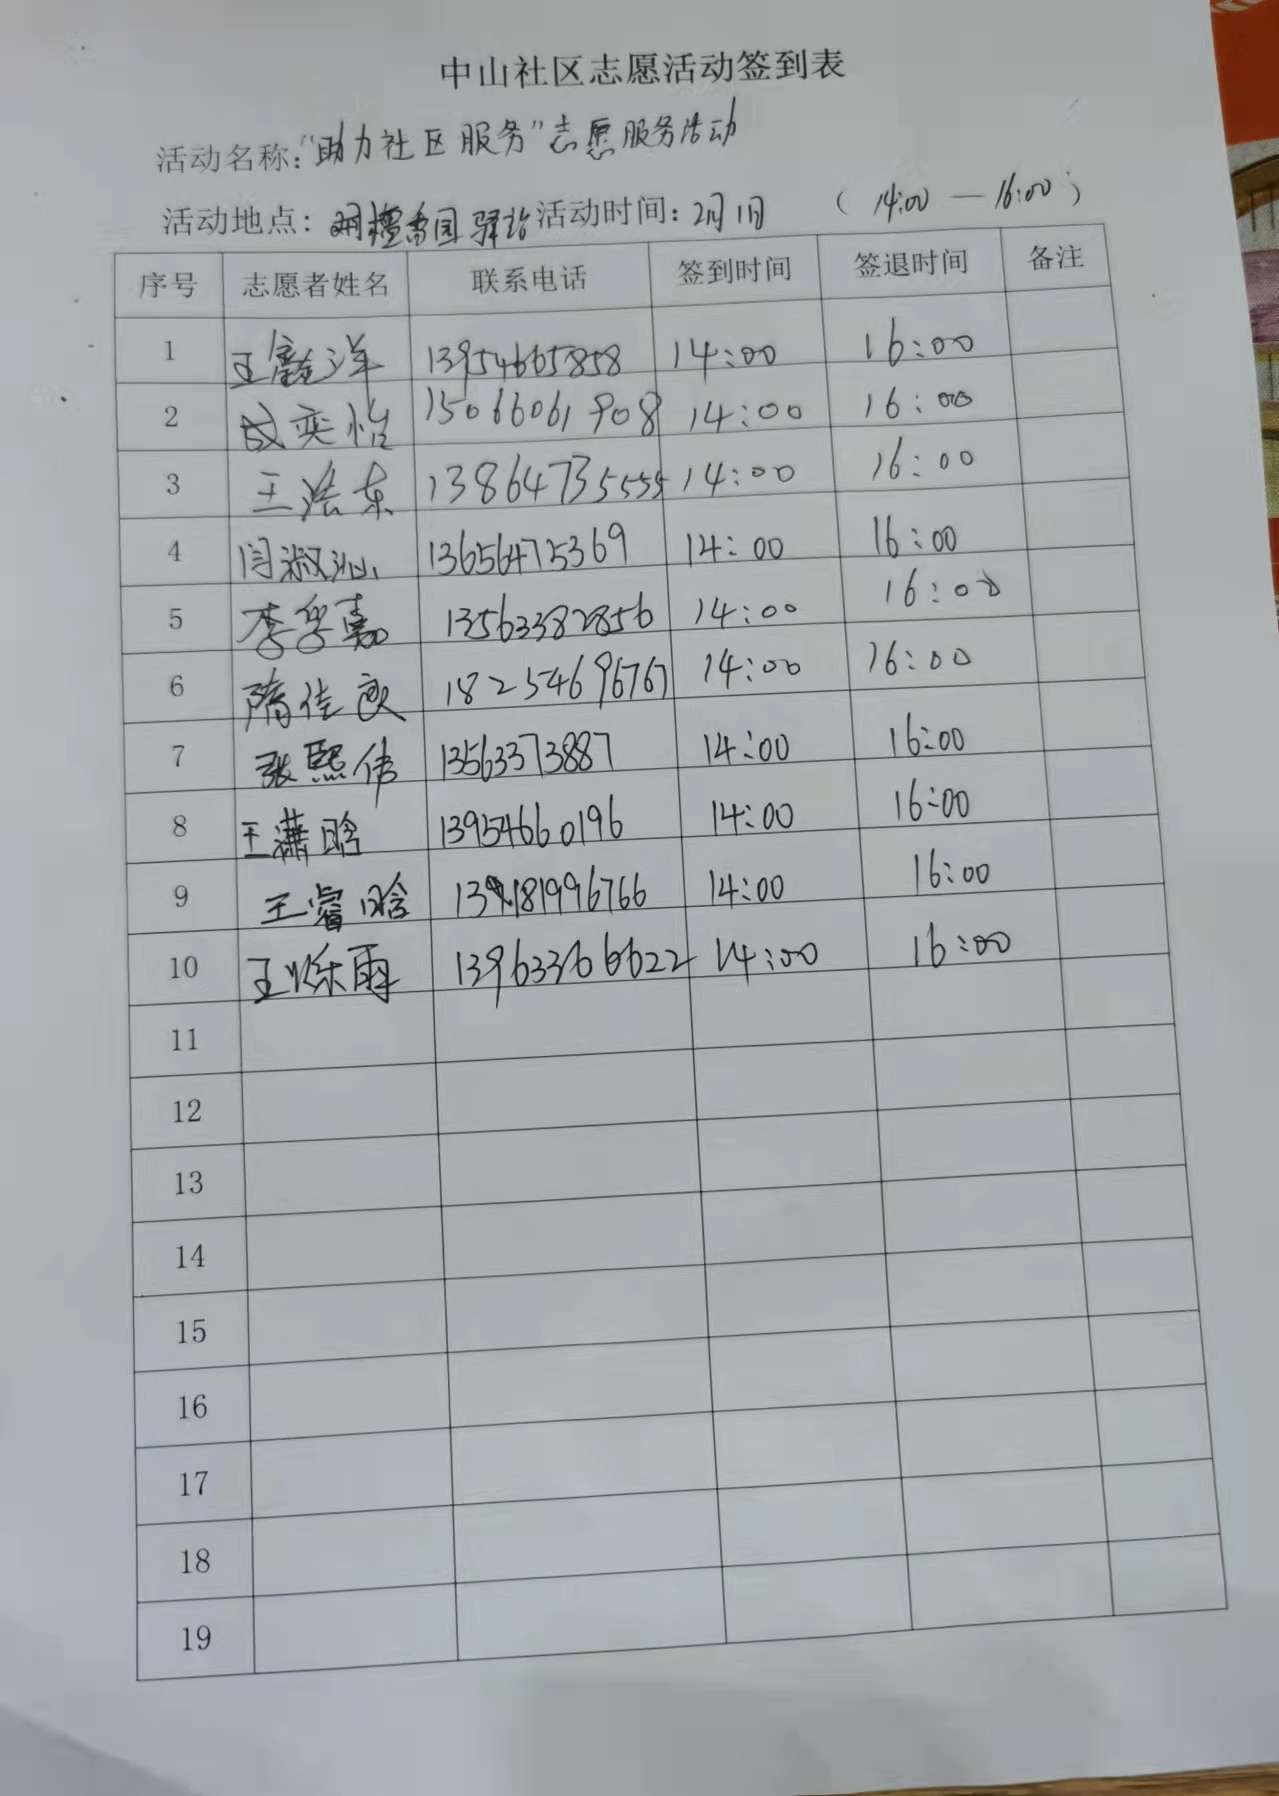 中山社区志愿活动签到表
活动名称:“助力社区服务”志愿服务活动
活动地点: 檀香园驿站 活动时间: 2月1日 (14:00—16:00)
序号 志愿者姓名 联系电话 签到时间 签退时间 备注
1 王鑫洋 13954665858 14:00 16:00
2 成奕怡 15066061908 14:00 16:00
3 王浩东 13864735555 14:00 16:00
4 闫淑汕 13656475369 14:00 16:00
5 李孚嘉 13563382856 14:00 16:00
6 隋佳良 18254696767 14:00 16:00
7 张熙伟 13563373887 14:00 16:00
8 王潇晗 13954660196 14:00 16:00
9 王睿晗 14:00 16:00
10 王烁雨 13963366622 14:00 16:00
11
12
13
14
15
16
17
18
19